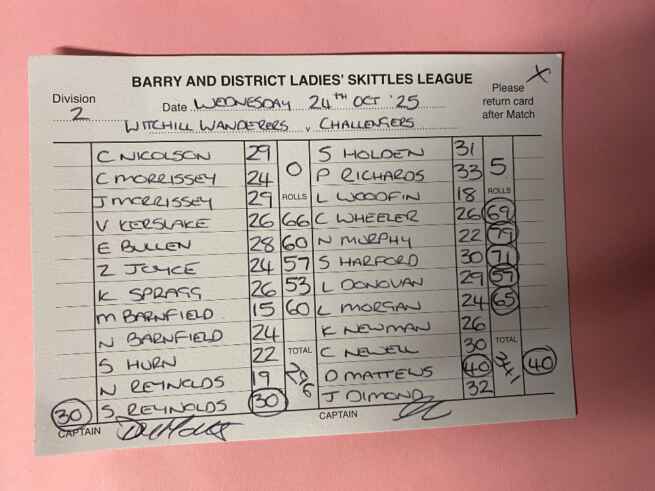 BARRY AND DISTRICT LADIES' SKITTLES LEAGUE
Division 2
Date WEDNESDAY 24TH OCT '25
Please return card after Match
X
WITCHILL WANDERERS v CHALLENGERS
C NICOLSON 29 0 S HOLDEN 31 5
C MORRISSEY 24 P RICHARDS 33
J MORRISSEY 29 ROLLS L WOOFIN 18 ROLLS
V KERSLAKE 26 66 C WHEELER 26 69
E BULLEN 28 60 N MURPHY 22 79
Z JOYCE 24 57 S HARFORD 30 71
K SPRAGG 26 53 L DONOVAN 29 57
M BARNFIELD 15 60 L MORGAN 24 65
N BARNFIELD 24 K NEWMAN 26
S HURN 22 TOTAL C NEWELL 30 TOTAL
N REYNOLDS 19 296 D MATTEWS 40 341 40
30 S REYNOLDS 30 J DIMOND 32
CAPTAIN CAPTAIN